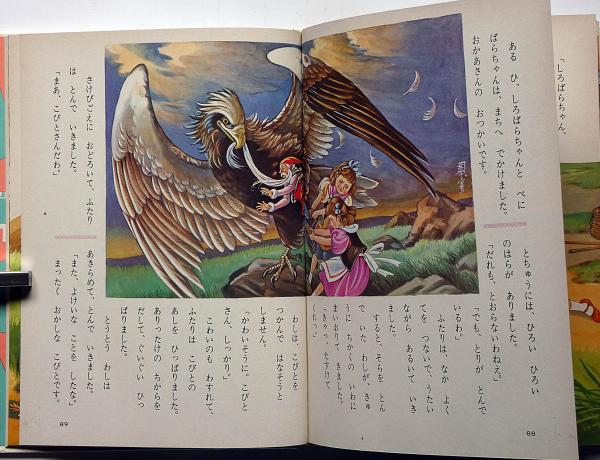 ある ひ、しろばらちゃんと べに
ばらちゃんは、まちへ でかけました。
おかあさんの おつかいです。
とちゅうには、ひろい ひろい
のはらが ありました。
「だれも、とおらないわねえ。」
「でも、とりが とんで
いるわ。」
ふたりは、なか よく
てを つないで、うたい
ながら あるいて いき
ました。
すると、そらを とん
で いた わしが、きゅ
うに ちかくの いわに
まいおりて きました。
「きゃっ、たすけて
くれっ。」
88
さけびごえに おどろいて、ふたり
は とんで いきました。
「まあ、こびとさんだわ。」
わしは、こびとを
つかんで はなそうと
しません。
「かわいそうに。こびと
さん、しっかり。」
こわいのも わすれて、
ふたりは こびとの
あしを ひっぱりました。
ありったけの ちからを
だして、ぐいぐい ひっ
ぱりました。
とうとう わしは
あきらめて、とんで いきました。
「また、よけいな ことを したな。」
まったく おかしな こびとです。
89
「しろばらちゃん、